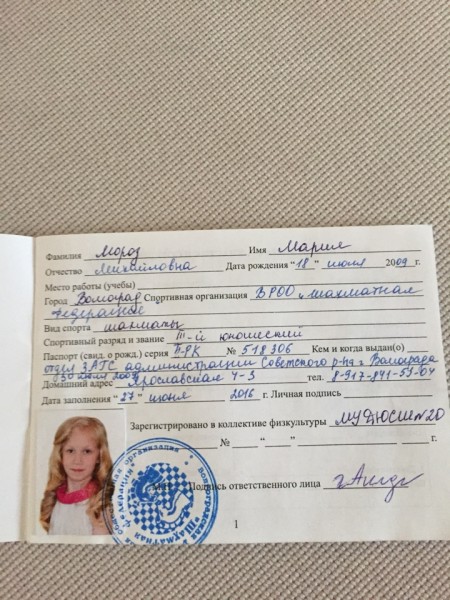 Фамилия Мороз Имя Мария
Отчество Михайловна Дата рождения "18" июня 2009 г.
Место работы (учебы)
Город Волгоград Спортивная организация ВРОО „шахматная
федерация"
Вид спорта шахматы
Спортивный разряд и звание III-й юношеский
Паспорт (свид. о рожд.) серия II-РК № 518306 Кем и когда выдан(о)
отдел ЗАГС администрации Советского р-на г. Волгограда
30 июля 2009
Домашний адрес Ярославская 4-3 тел. 8-917-841-59-04
Дата заполнения "27" июня 2016 г. Личная подпись
Зарегистрировано в коллективе физкультуры МУДЮСШ №20
№ " " г.
Подпись ответственного лица
1